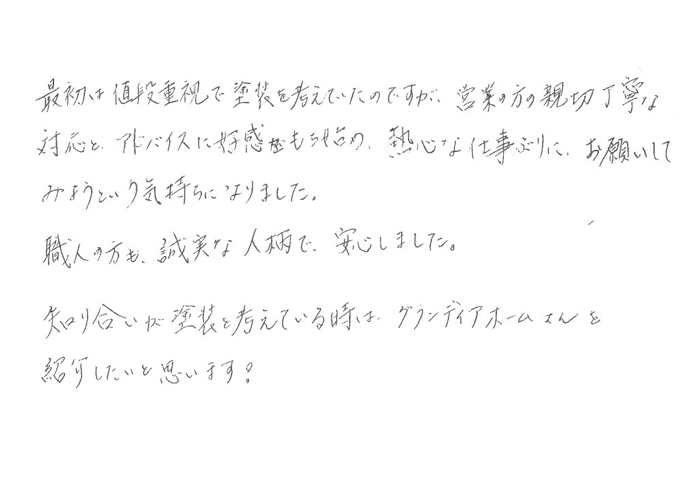 最初は値段重視で塗装を考えていたのですが、営業の方の親切丁寧な
対応と、アドバイスに好感をもち始め、熱心な仕事ぶりに、お願いして
みようという気持ちになりました。
職人の方も、誠実な人柄で、安心しました。
知り合いが塗装を考えている時は、グランディアホームさんを
紹介したいと思います!